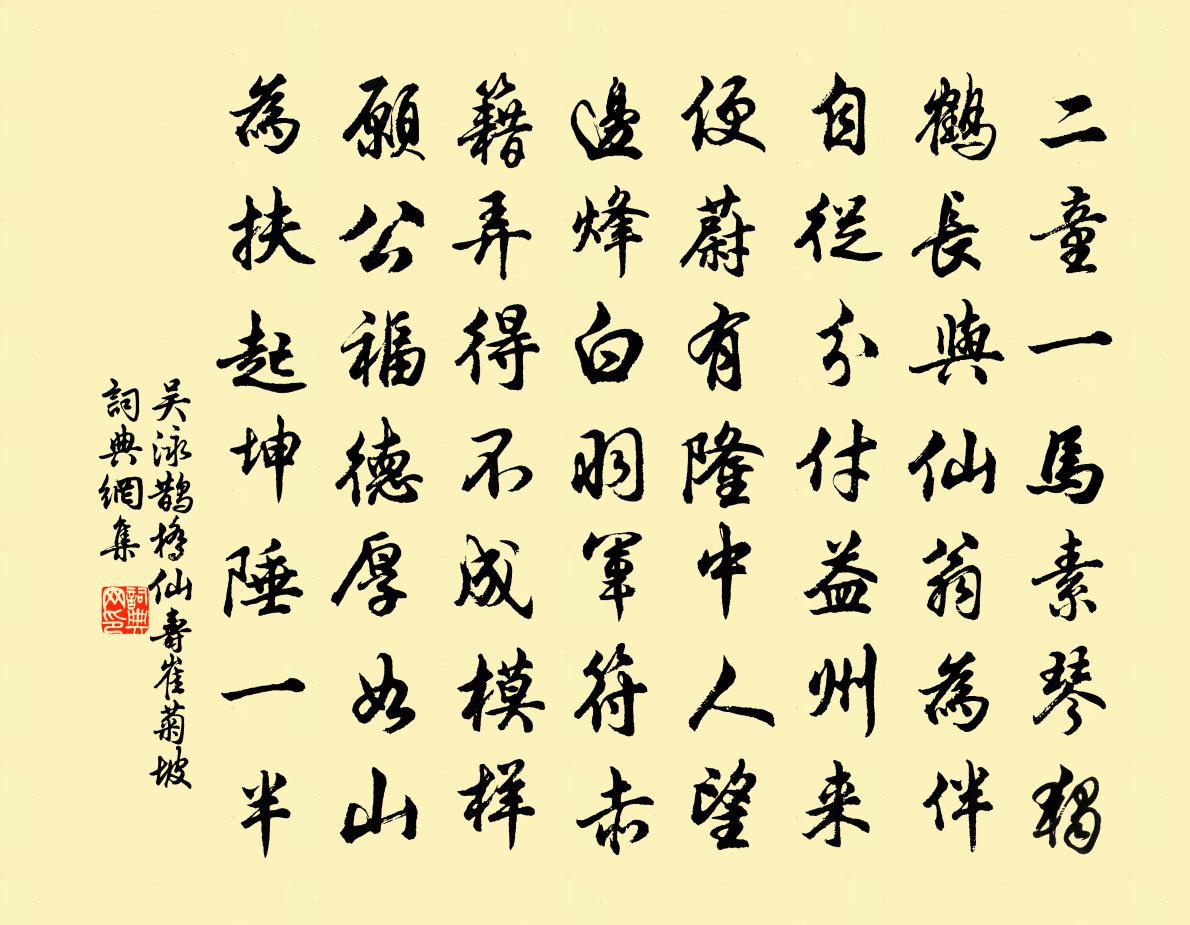 二童一馬素琴獨
鶴長與仙翁為伴
自從分付益州来
便蔚有隆中人望
邊烽白羽軍符赤
籍弄得不成模样
願公福德厚如山
為扶起坤陲一半
吴泳鵲橋仙壽崔菊坡
詞典網集
詞典网印